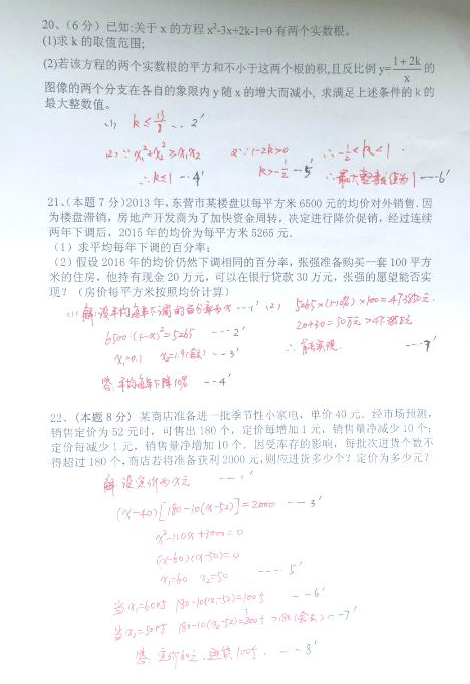 20、(6分) 已知:关于 x 的方程 x²-3x+2k-1=0 有两个实数根。
(1)求 k 的取值范围;
(2)若该方程的两个实数根的平方和不小于这两个根的积,且反比例 y=(1+2k)/x 的
图像的两个分支在各自的象限内 y 随 x 的增大而减小, 求满足上述条件的 k 的
最大整数值。
(1) k≤13/8 --- 2'
(2) ∵ x₁²+x₂²≥x₁x₂
∴ k≤1 --- 4'
k>-1/2 --- 5'
∴ -1/2<k≤1
∴ 最大整数值为1 --- 6'
21、(本题 7 分) 2013 年, 东营市某楼盘以每平方米 6500 元的均价对外销售. 因
为楼盘滞销, 房地产开发商为了加快资金周转, 决定进行降价促销, 经过连续
两年下调后, 2015 年的均价为每平方米 5265 元.
(1) 求平均每年下调的百分率;
(2) 假设 2016 年的均价仍然下调相同的百分率, 张强准备购买一套 100 平方
米的住房, 他持有现金 20 万元, 可以在银行贷款 30 万元, 张强的愿望能否实
现? (房价每平方米按照均价计算)
(1) 解:设平均每年下调的百分率为x --- 1'
6500·(1-x)²=5265 --- 2'
x₁=0.1 x₂=1.9(舍去) --- 3'
答:平均每年下降10% --- 4'
(2) 5265×(1-10%)×100=47385元
20+30=50万元>47.385元
∴ 能实现. --- 7'
22、(本题 8 分) 某商店准备进一批季节性小家电, 单价 40 元. 经市场预测,
销售定价为 52 元时, 可售出 180 个, 定价每增加 1 元, 销售量净减少 10 个;
定价每减少 1 元, 销售量净增加 10 个. 因受库存的影响, 每批次进货个数不
得超过 180 个, 商店若将准备获利 2000 元, 则应进货多少个? 定价为多少元?
解 设定价为x元 --- 1'
(x-40)[180-10(x-52)]=2000 --- 3'
x²-110x+3000=0
(x-60)(x-50)=0
x₁=60 x₂=50 --- 5'
当x₁=60时 180-10(x₁-52)=100个 --- 6'
当x₂=50时 180-10(x₂-52)=200个 >180(舍去) --- 7'
答: 定价60元, 进货100个. --- 8'